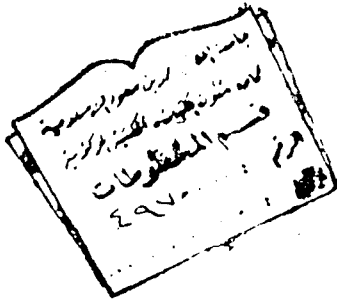 جامعة الإمام محمد بن سعود الإسلامية
عمادة شئون المكتبات المكتبة المركزية
قسم المخطوطات
الرقم :
٤٩٧٠